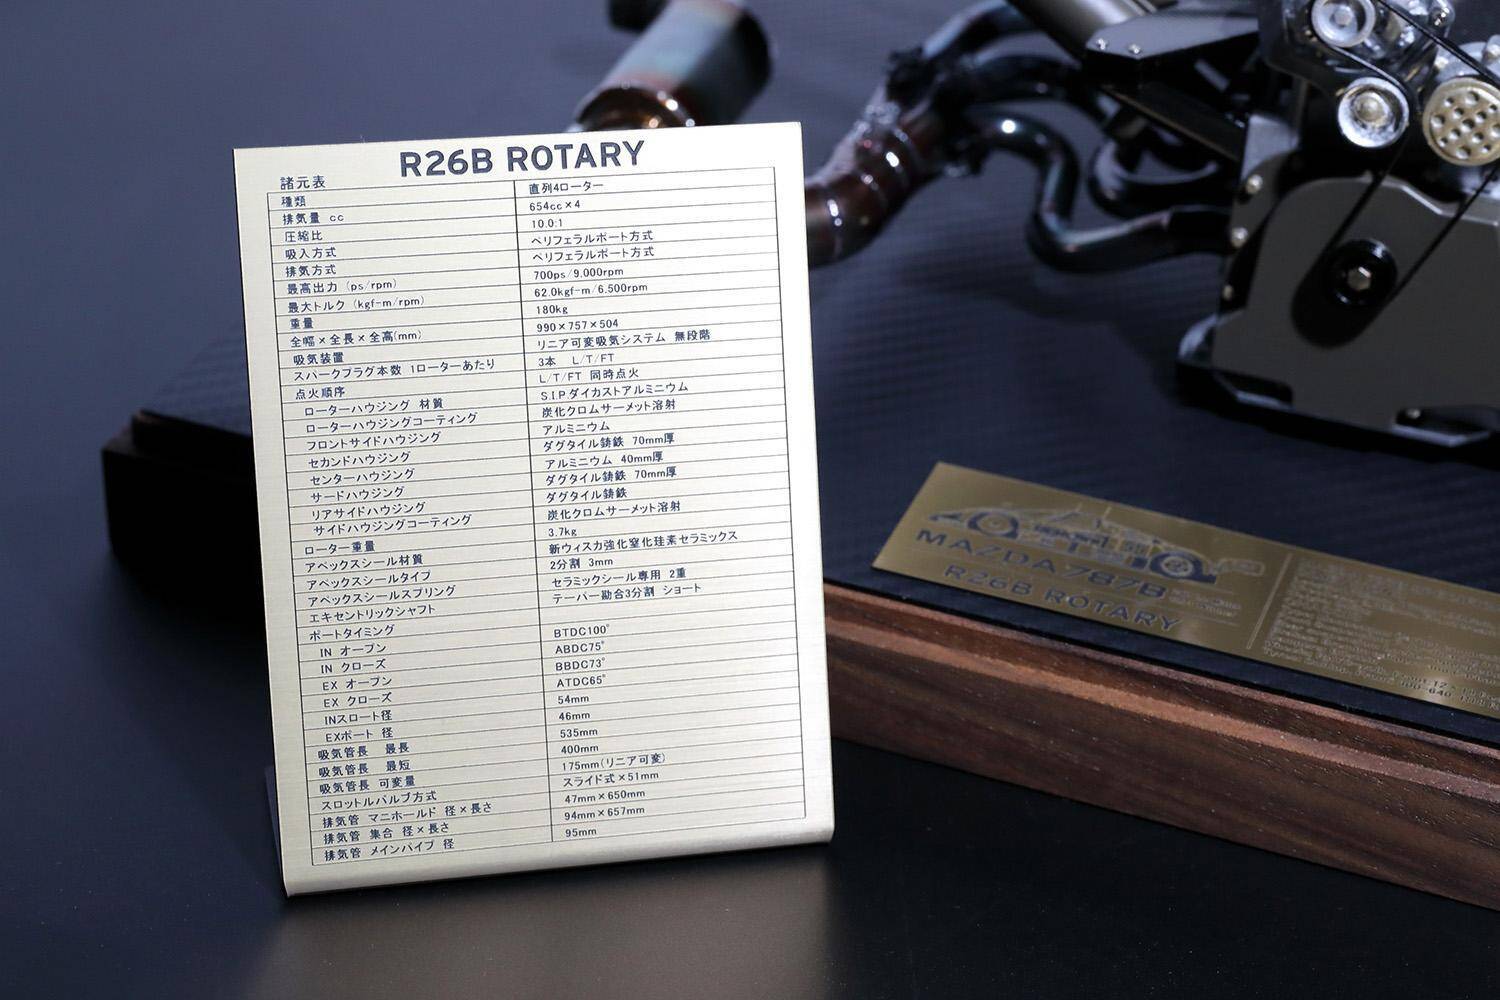 R26B ROTARY
諸元表
種類 直列4ローター
排気量 cc 654cc×4
圧縮比 10.0:1
吸入方式 ペリフェラルポート方式
排気方式 ペリフェラルポート方式
最高出力 (ps/rpm) 700ps/9,000rpm
最大トルク (kgf-m/rpm) 62.0kgf-m/6,500rpm
重量 180kg
全幅×全長×全高(mm) 990×757×504
吸気装置 リニア可変吸気システム 無段階
スパークプラグ本数 1ローターあたり 3本 L/T/FT
点火順序 L/T/FT 同時点火
ローターハウジング 材質 S.I.P.ダイカストアルミニウム
ローターハウジングコーティング 炭化クロムサーメット溶射
フロントサイドハウジング アルミニウム
セカンドハウジング ダグタイル鋳鉄 70mm厚
センターハウジング アルミニウム 40mm厚
サードハウジング ダグタイル鋳鉄 70mm厚
リアサイドハウジング ダグタイル鋳鉄
サイドハウジングコーティング 炭化クロムサーメット溶射
ローター重量 3.7kg
アペックスシール材質 新ウィスカ強化窒化珪素セラミックス
アペックスシールタイプ 2分割 3mm
アペックスシールスプリング セラミックシール専用 2重
エキセントリックシャフト テーパー勘合3分割 ショート
ポートタイミング
IN オープン BTDC100°
IN クローズ ABDC75°
EX オープン BBDC73°
EX クローズ ATDC65°
INスロート径 54mm
EXポート 径 46mm
吸気管長 最長 535mm
吸気管長 最短 400mm
吸気管長 可変量 175mm(リニア可変)
スロットルバルブ方式 スライド式×51mm
排気管 マニホールド 径×長さ 47mm×650mm
排気管 集合 径×長さ 94mm×657mm
排気管 メインパイプ 径 95mm
MAZDA 787B
R26B ROTARY